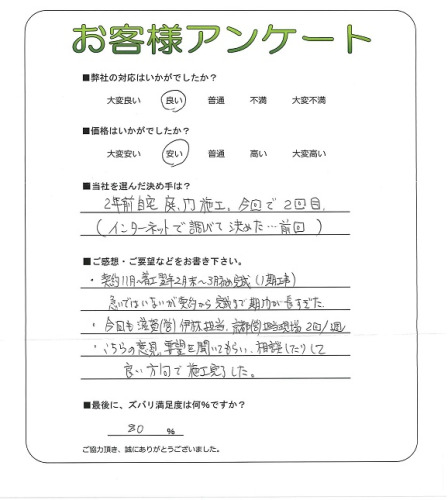 お客様アンケート
■弊社の対応はいかがでしたか？
大変良い 良い 普通 不満 大変不満
■価格はいかがでしたか？
大変安い 安い 普通 高い 大変高い
■当社を選んだ決め手は？
2年前自宅 庭、門 施工、今回で2回目.
(インターネットで調びて決めた…前回)
■ご感想・ご要望などをお書き下さい。
・契約11月〜着工翌年2月末〜3月 完成 (1期工事)
急いではいないが契約から完成まで期間が長すぎた.
・今回も滋賀(営) 伊 担当、京都(営) 現場 2回/週
・こちらの意見、要望を聞いてもらい、相談したりして
良い方向で施工完了した。
■最後に、ズバリ満足度は何%ですか？
80 %
ご協力頂き、誠にありがとうございました。